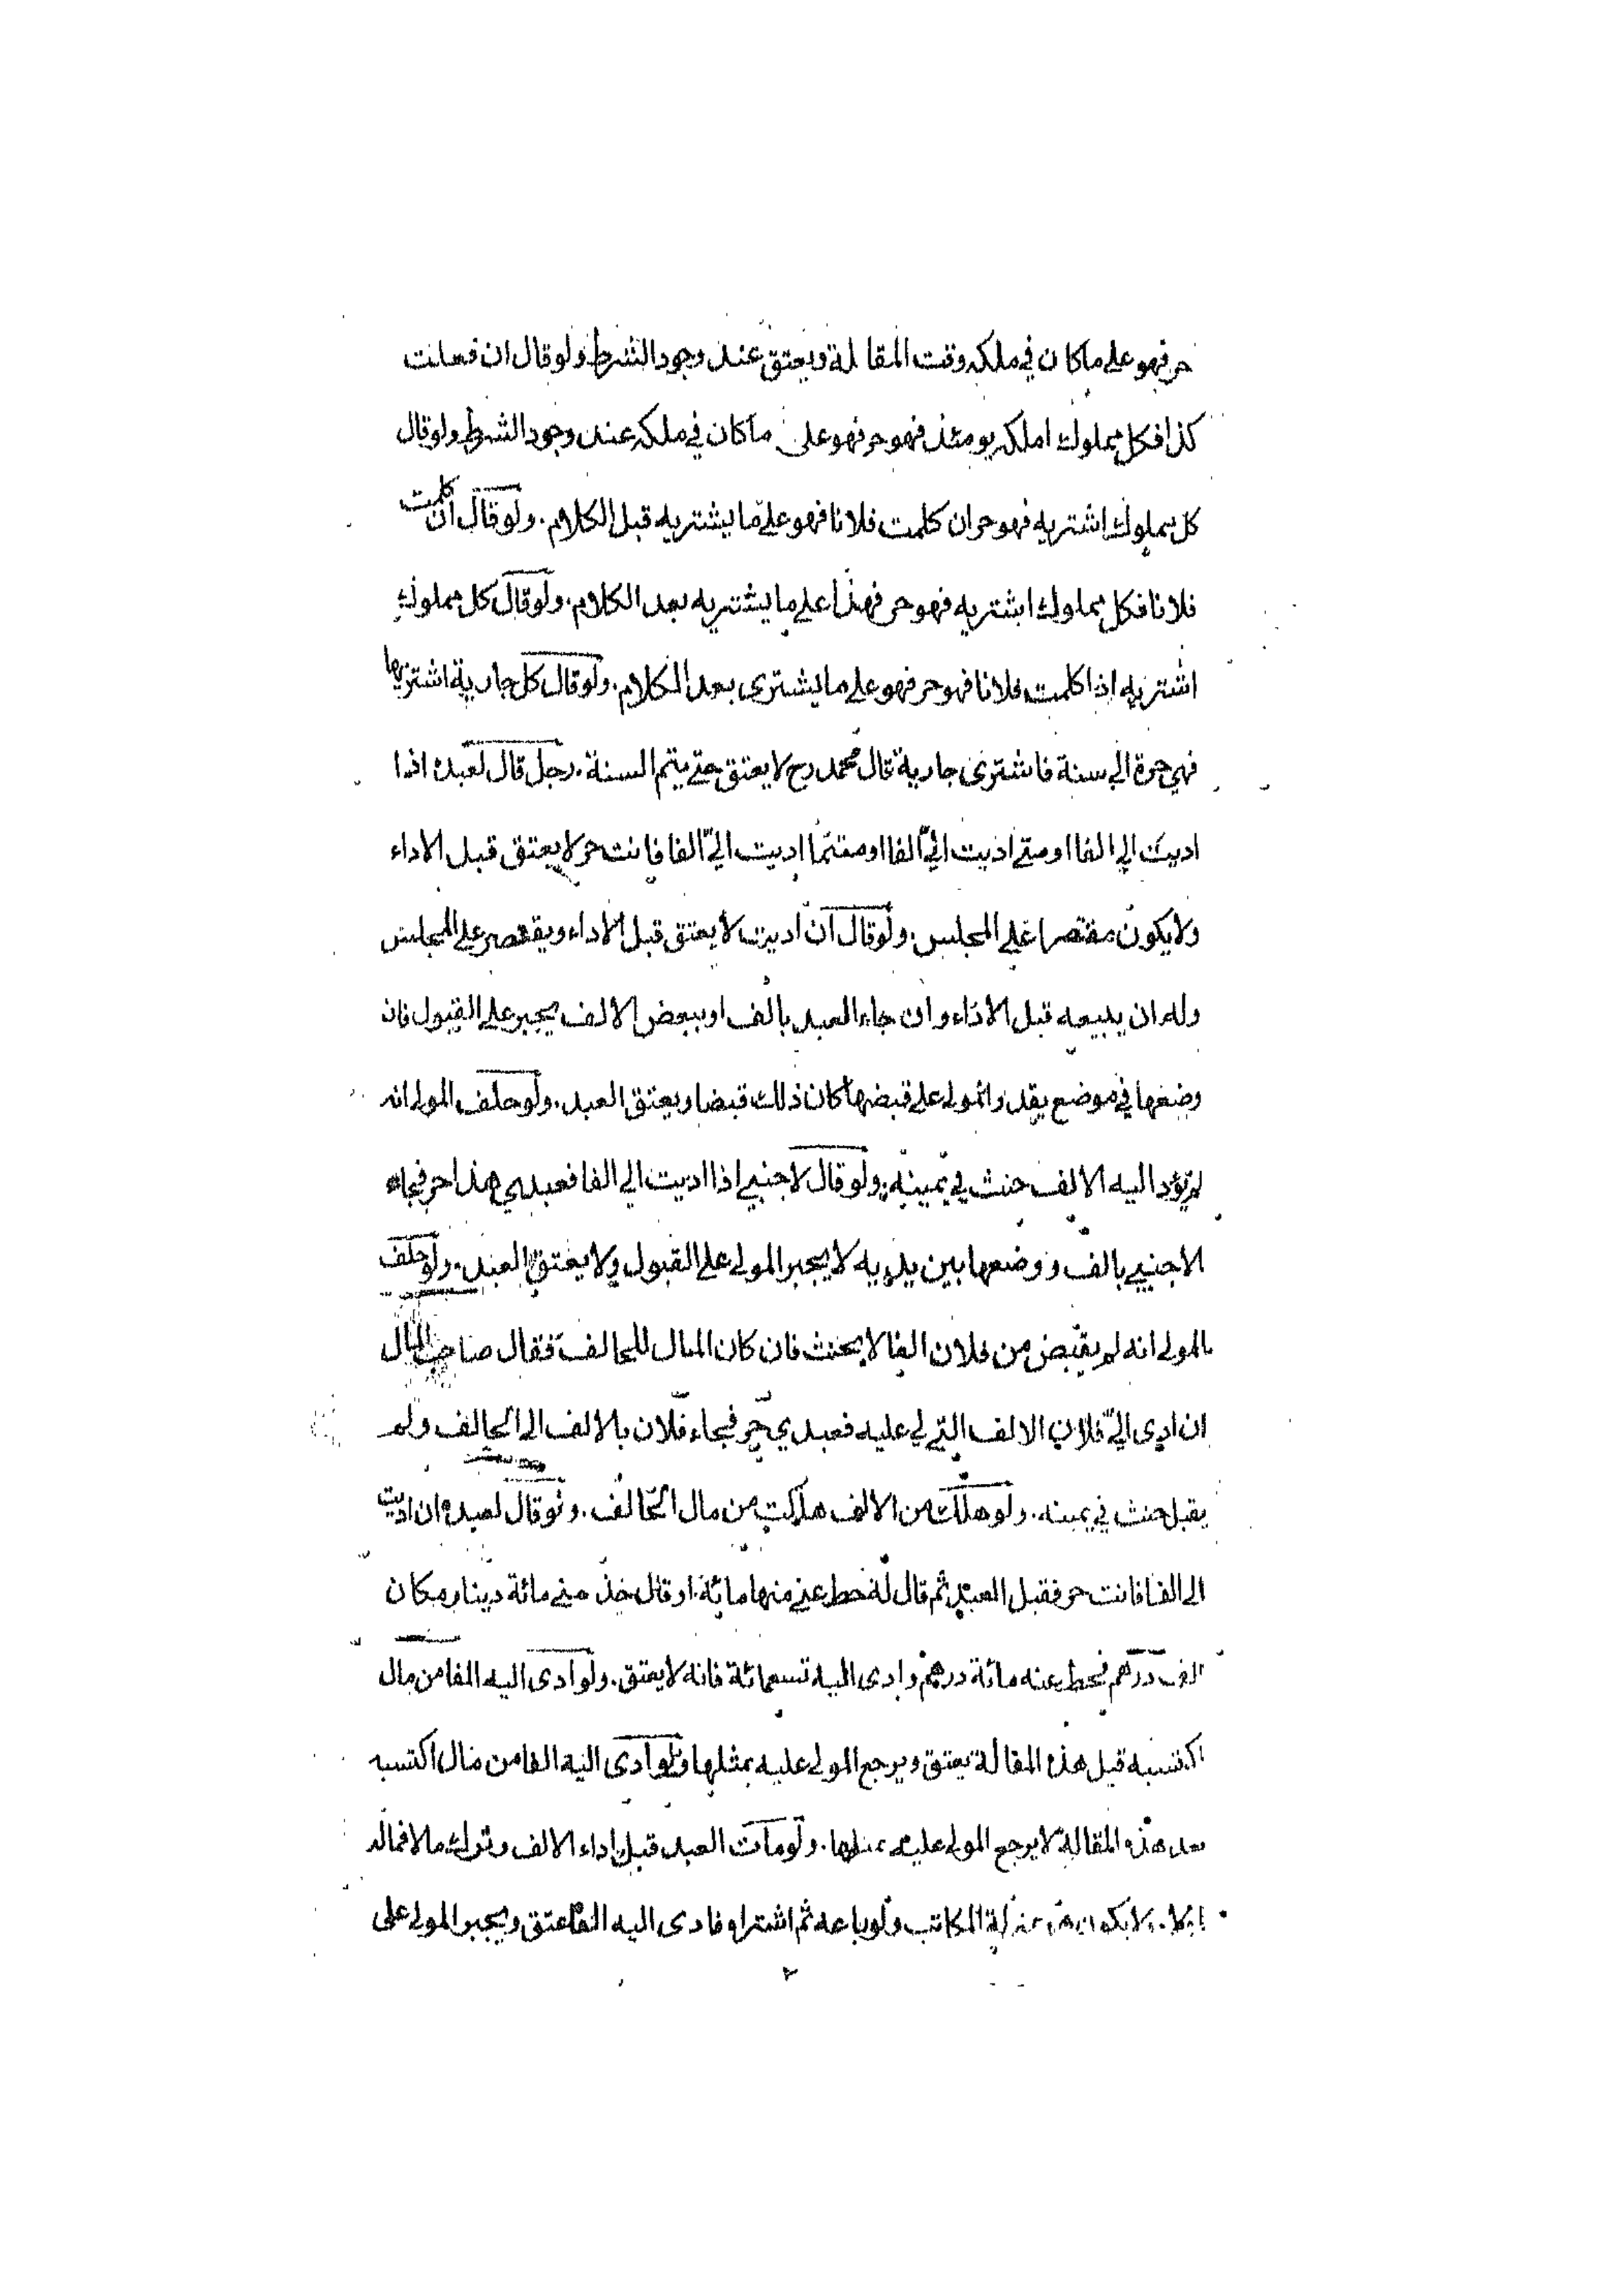 حر فهو على ما كان في ملكه وقت المقالة ويعتق عند وجود الشرط ولو قال ان فعلت
كذا فكل مملوك املكه يومئذ فهو حر فهو على ما كان في ملكه عند وجود الشرط ولو قال
كل مملوك اشتريه فهو حر ان كلمت فلانا فهو على ما يشتريه قبل الكلام. ولو قال ان كلمت
فلانا فكل مملوك اشتريه فهو حر فهذا على ما يشتريه بعد الكلام. ولو قال كل مملوك
اشتريه اذا كلمت فلانا فهو حر فهو على ما يشترى بعد الكلام. ولو قال كل جارية اشتريها
فهي حرة الي سنة فاشترى جارية قال محمد رح لا يعتق حتى يتم السنة. رجل قال لعبده اذا
اديت الي الفا او متى اديت اليّ الفا او متىما اديت اليّ الفا فانت حر لا يعتق قبل الاداء
ولا يكون مقتصرا على المجلس. ولو قال ان اديت لا يعتق قبل الاداء ويقتصر على المجلس
وله ان يبيعه قبل الاداء وان جاء العبد بالف او ببعض الالف يجبر على القبول فان
وضعها في موضع يقدر المولى على قبضها كان ذلك قبضا ويعتق العبد. ولو حلف المولى انه
لم يؤد اليه الالف حنث في يمينه. ولو قال لاجنبي اذا اديت الي الفا فعبدي هذا حر فجاء
الاجنبي بالف ووضعها بين يديه لا يجبر المولى على القبول ولا يعتق العبد. ولو حلف
المولى انه لم يقبض من فلان الفا لا يحنث فان كان المال للحالف فقال صاحب المال
ان ادى اليّ فلان الالف التي لي عليه فعبدي حر فجاء فلان بالالف الى الحالف ولم
يقبل حنث في يمينه. ولو هلكت من الالف هلكت من مال الحالف. ولو قال لعبده ان اديت
الى الفا فانت حر فقبل العبد ثم قال له حط عني منها مائة او قال خذ مني مائة دينار مكان
الف درهم فحط عنه مائة درهم وادى اليه تسعمائة فانه لا يعتق. ولو ادى اليه الفا من مال
اكتسبه قبل هذه المقالة يعتق ويرجع المولى عليه بمثلها ولو ادى اليه الفا من مال اكتسبه
بعد هذه المقالة لا يرجع المولى عليه بمثلها. ولو مات العبد قبل اداء الالف وترك مالا فماله
ولا يكون بمنزلة المكاتب ولو باعه ثم اشتراه فادى اليه الفا عتق ويجبر المولى على